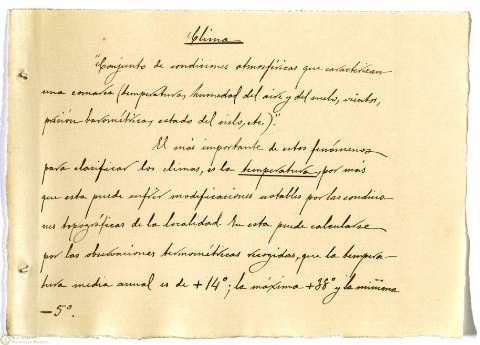 Clima
"Conjunto de condiciones atmosféricas que caracterizan
una comarca (temperatura, humedad del aire y del suelo, vientos,
presión barométrica, estado del cielo, etc.)."
El más importante de estos fenómenos
para clasificar los climas, es la temperatura, por más
que esta puede sufrir modificaciones notables por las condicio-
nes topográficas de la localidad. En esta puede calcularse
por las observaciones termométricas recogidas, que la tempera-
tura media anual es de +14°; la máxima +38° y la mínima
-5°.